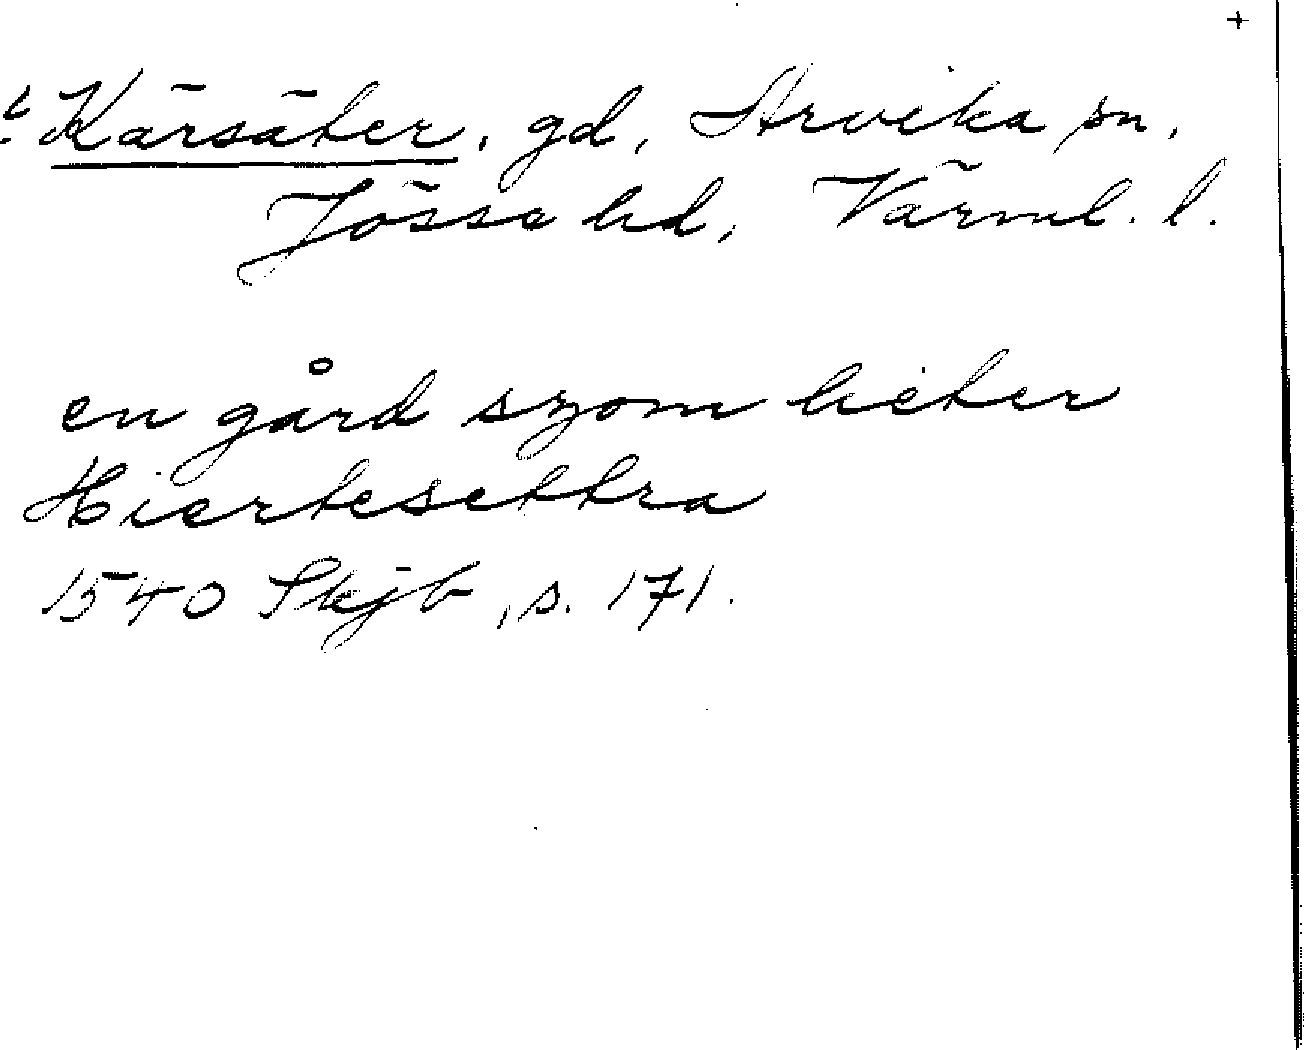 +
? Kärsäter, gd, Arvika sn,
Jösse hd, Värml. l.
en gård szom heter
Hiertesettra
1540 Skjb, s. 171.